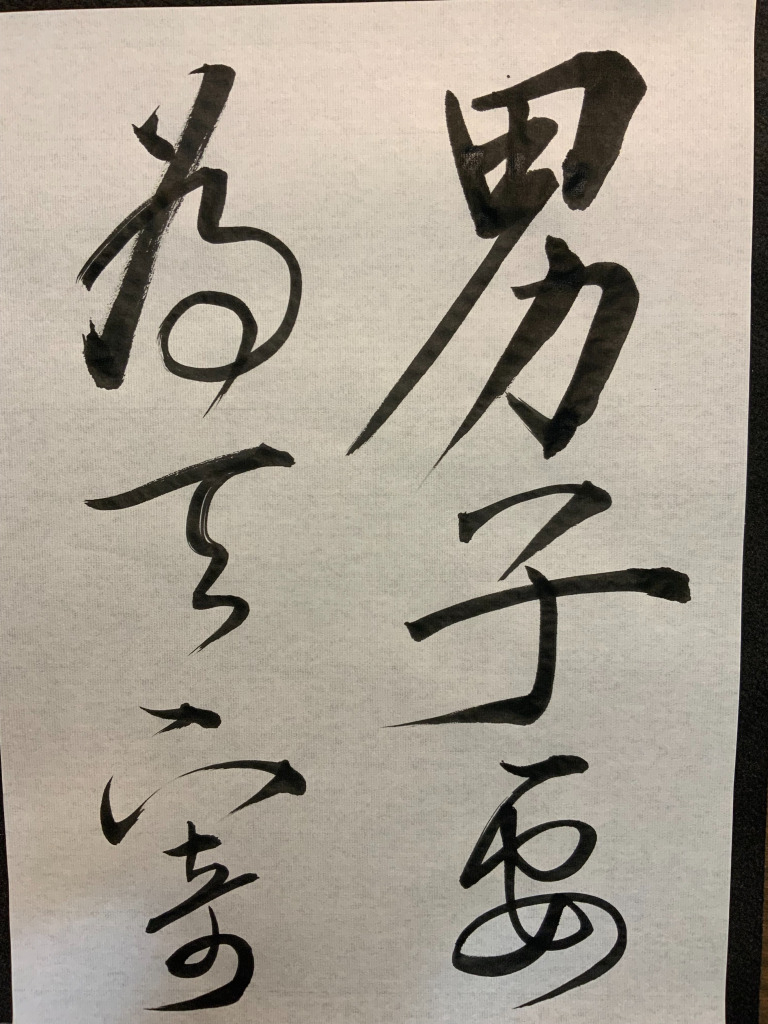 男子要
為天下奇